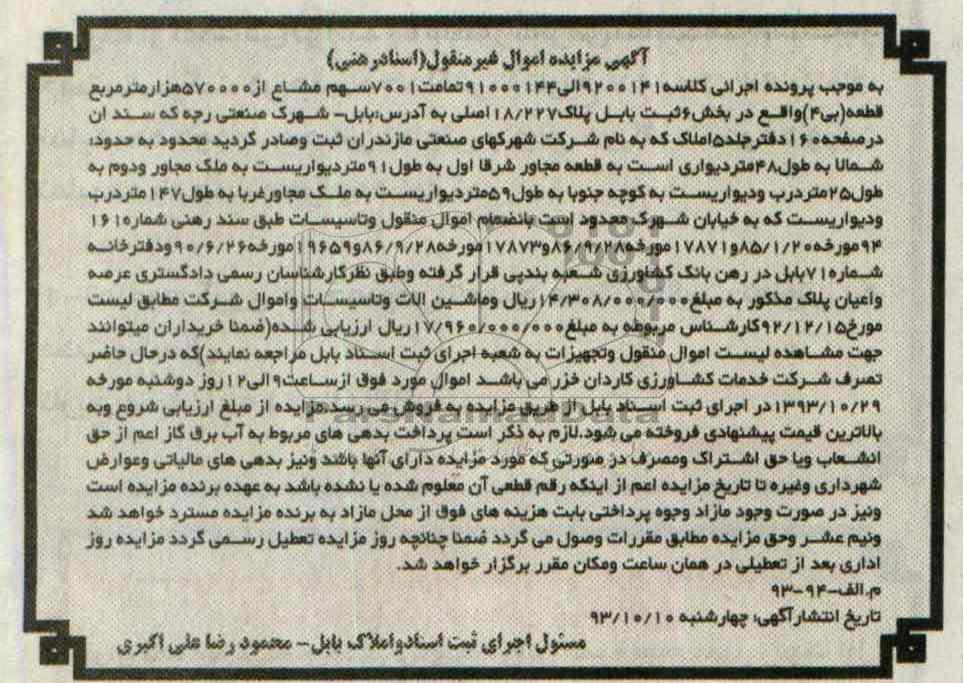 آگهی مزایده اموال غیرمنقول(اسنادرهنی)
به موجب پرونده اجرائی کلاسه۹۲۰۰۱۴۱الی۹۱۰۰۰۱۴۴تمامت۷۰۰۱سهم مشاع از۵۷۰۰۰۰هزارمترمربع
قطعه(بی۴)واقع در بخش۶ثبت بابل پلاک۱۸/۲۲۷اصلی به آدرس:بابل- شهرک صنعتی رجه که سند ان
درصفحه۱۶۰دفترجلد۵املاک که به نام شرکت شهرکهای صنعتی مازندران ثبت وصادر گردید محدود به حدود:
شمالا به طول۴۸متردیواری است به قطعه مجاور شرقا اول به طول۹۱متردیواریست به ملک مجاور ودوم به
طول۲۵متردرب ودیواریست به کوچه جنوبا به طول۵۹متردیواریست به ملک مجاورغربا به طول۱۴۷متردرب
ودیواریست که به خیابان شهرک محدود است بانضمام اموال منقول وتاسیسات طبق سند رهنی شماره۱۶۱
۹۴مورخه۸۵/۱/۲۰و۱۷۸۷۱مورخه۸۶/۹/۲۸و۱۷۸۷۳مورخه۸۶/۹/۲۸و۱۹۶۵۹مورخه۹۰/۶/۲۶ودفترخانه
شماره۷۱بابل در رهن بانک کشاورزی شعبه بندپی قرار گرفته وطبق نظرکارشناسان رسمی دادگستری عرصه
واعیان پلاک مذکور به مبلغ۱۴/۳۰۸/۰۰۰/۰۰۰ریال وماشین الات وتاسیسات واموال شرکت مطابق لیست
مورخ۹۲/۱۲/۱۵کارشناس مربوطه به مبلغ۱۷/۹۶۰/۰۰۰/۰۰۰ریال ارزیابی شده(ضمنا خریداران میتوانند
جهت مشاهده لیست اموال منقول وتجهیزات به شعبه اجرای ثبت اسناد بابل مراجعه نمایند)که درحال حاضر
تصرف شرکت خدمات کشاورزی کاردان خزر می باشد اموال مورد فوق ازساعت۹الی۱۲روز دوشنبه مورخه
۱۳۹۳/۱۰/۲۹در اجرای ثبت اسناد بابل از طریق مزایده به فروش می رسد.مزایده از مبلغ ارزیابی شروع وبه
بالاترین قیمت پیشنهادی فروخته می شود.لازم به ذکر است پرداخت بدهی های مربوط به آب برق گاز اعم از حق
انشعاب ویا حق اشتراک ومصرف در صورتی که مورد مزایده دارای آنها باشند ونیز بدهی های مالیاتی وعوارض
شهرداری وغیره تا تاریخ مزایده اعم از اینکه رقم قطعی آن معلوم شده یا نشده باشد به عهده برنده مزایده است
ونیز در صورت وجود مازاد وجوه پرداختی بابت هزینه های فوق از محل مازاد به برنده مزایده مسترد خواهد شد
ونیم عشر وحق مزایده مطابق مقررات وصول می گردد ضمنا چنانچه روز مزایده تعطیل رسمی گردد مزایده روز
اداری بعد از تعطیلی در همان ساعت ومکان مقرر برگزار خواهد شد.
م.الف-۹۴-۹۳
تاریخ انتشارآگهی: چهارشنبه ۹۳/۱۰/۱۰
مسئول اجرای ثبت اسنادواملاک بابل- محمود رضا علی اکبری